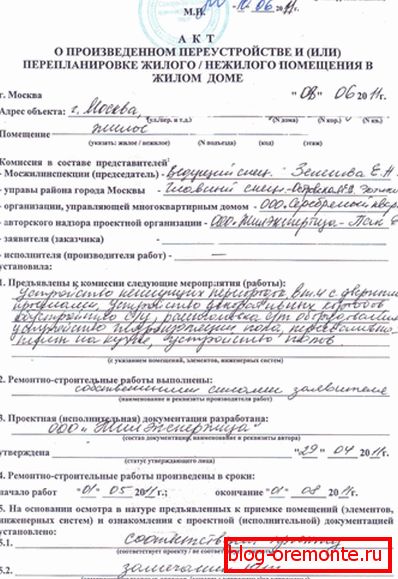 М.П. 10.06.11г.
А К Т
О ПРОИЗВЕДЕННОМ ПЕРЕУСТРОЙСТВЕ И (ИЛИ)
ПЕРЕПЛАНИРОВКЕ ЖИЛОГО / НЕЖИЛОГО ПОМЕЩЕНИЯ В
ЖИЛОМ ДОМЕ
г. Москва "08" 06 2011г.
Адрес объекта: г. Москва,
(ул./пер. и т.д.) (N дома) (N кор.) (N кв.)
Помещение жилое
(указать: жилое / нежилое) (N подъезда) (код) (этаж)
Комиссия в составе представителей
- Мосжилинспекции (председатель) - ведущий спец. Е.Н.
- управы района города Москвы - главный спец.
- организации, управляющей многоквартирным домом - ООО
- авторского надзора проектной организации - ООО "ЖилЭкспертиза"
- заявителя (заказчика) -
- исполнителя (производителя работ) -
установила:
1. Предъявлены к комиссии следующие мероприятия (работы):
устройство ненесущих перегородок в т.ч с дверными
проемами, устройство декоративных коробов
устройство гидроизоляции пола,
плиты на кухне, устройство полов
(с указанием помещений, элементов, инженерных систем)
2. Ремонтно-строительные работы выполнены:
собственными силами заявителя
(наименование и реквизиты производителя работ)
3. Проектная (исполнительная) документация разработана:
ООО "ЖилЭкспертиза"
(состав документации, наименование и реквизиты автора)
утверждена "29" 04 2011г.
(статус утверждающего лица)
4. Ремонтно-строительные работы произведены в сроки:
начало работ "01" 05 2011 г.; окончание "01" 08 2011 г.
5. На основании осмотра в натуре предъявленных к приемке помещений (элементов,
инженерных систем) и ознакомления с проектной (исполнительной) документацией
установлено:
5.1. соответствует проекту
(соответствует проекту / не соответствует
5.2. замечаний нет
blog-oremonte.ru